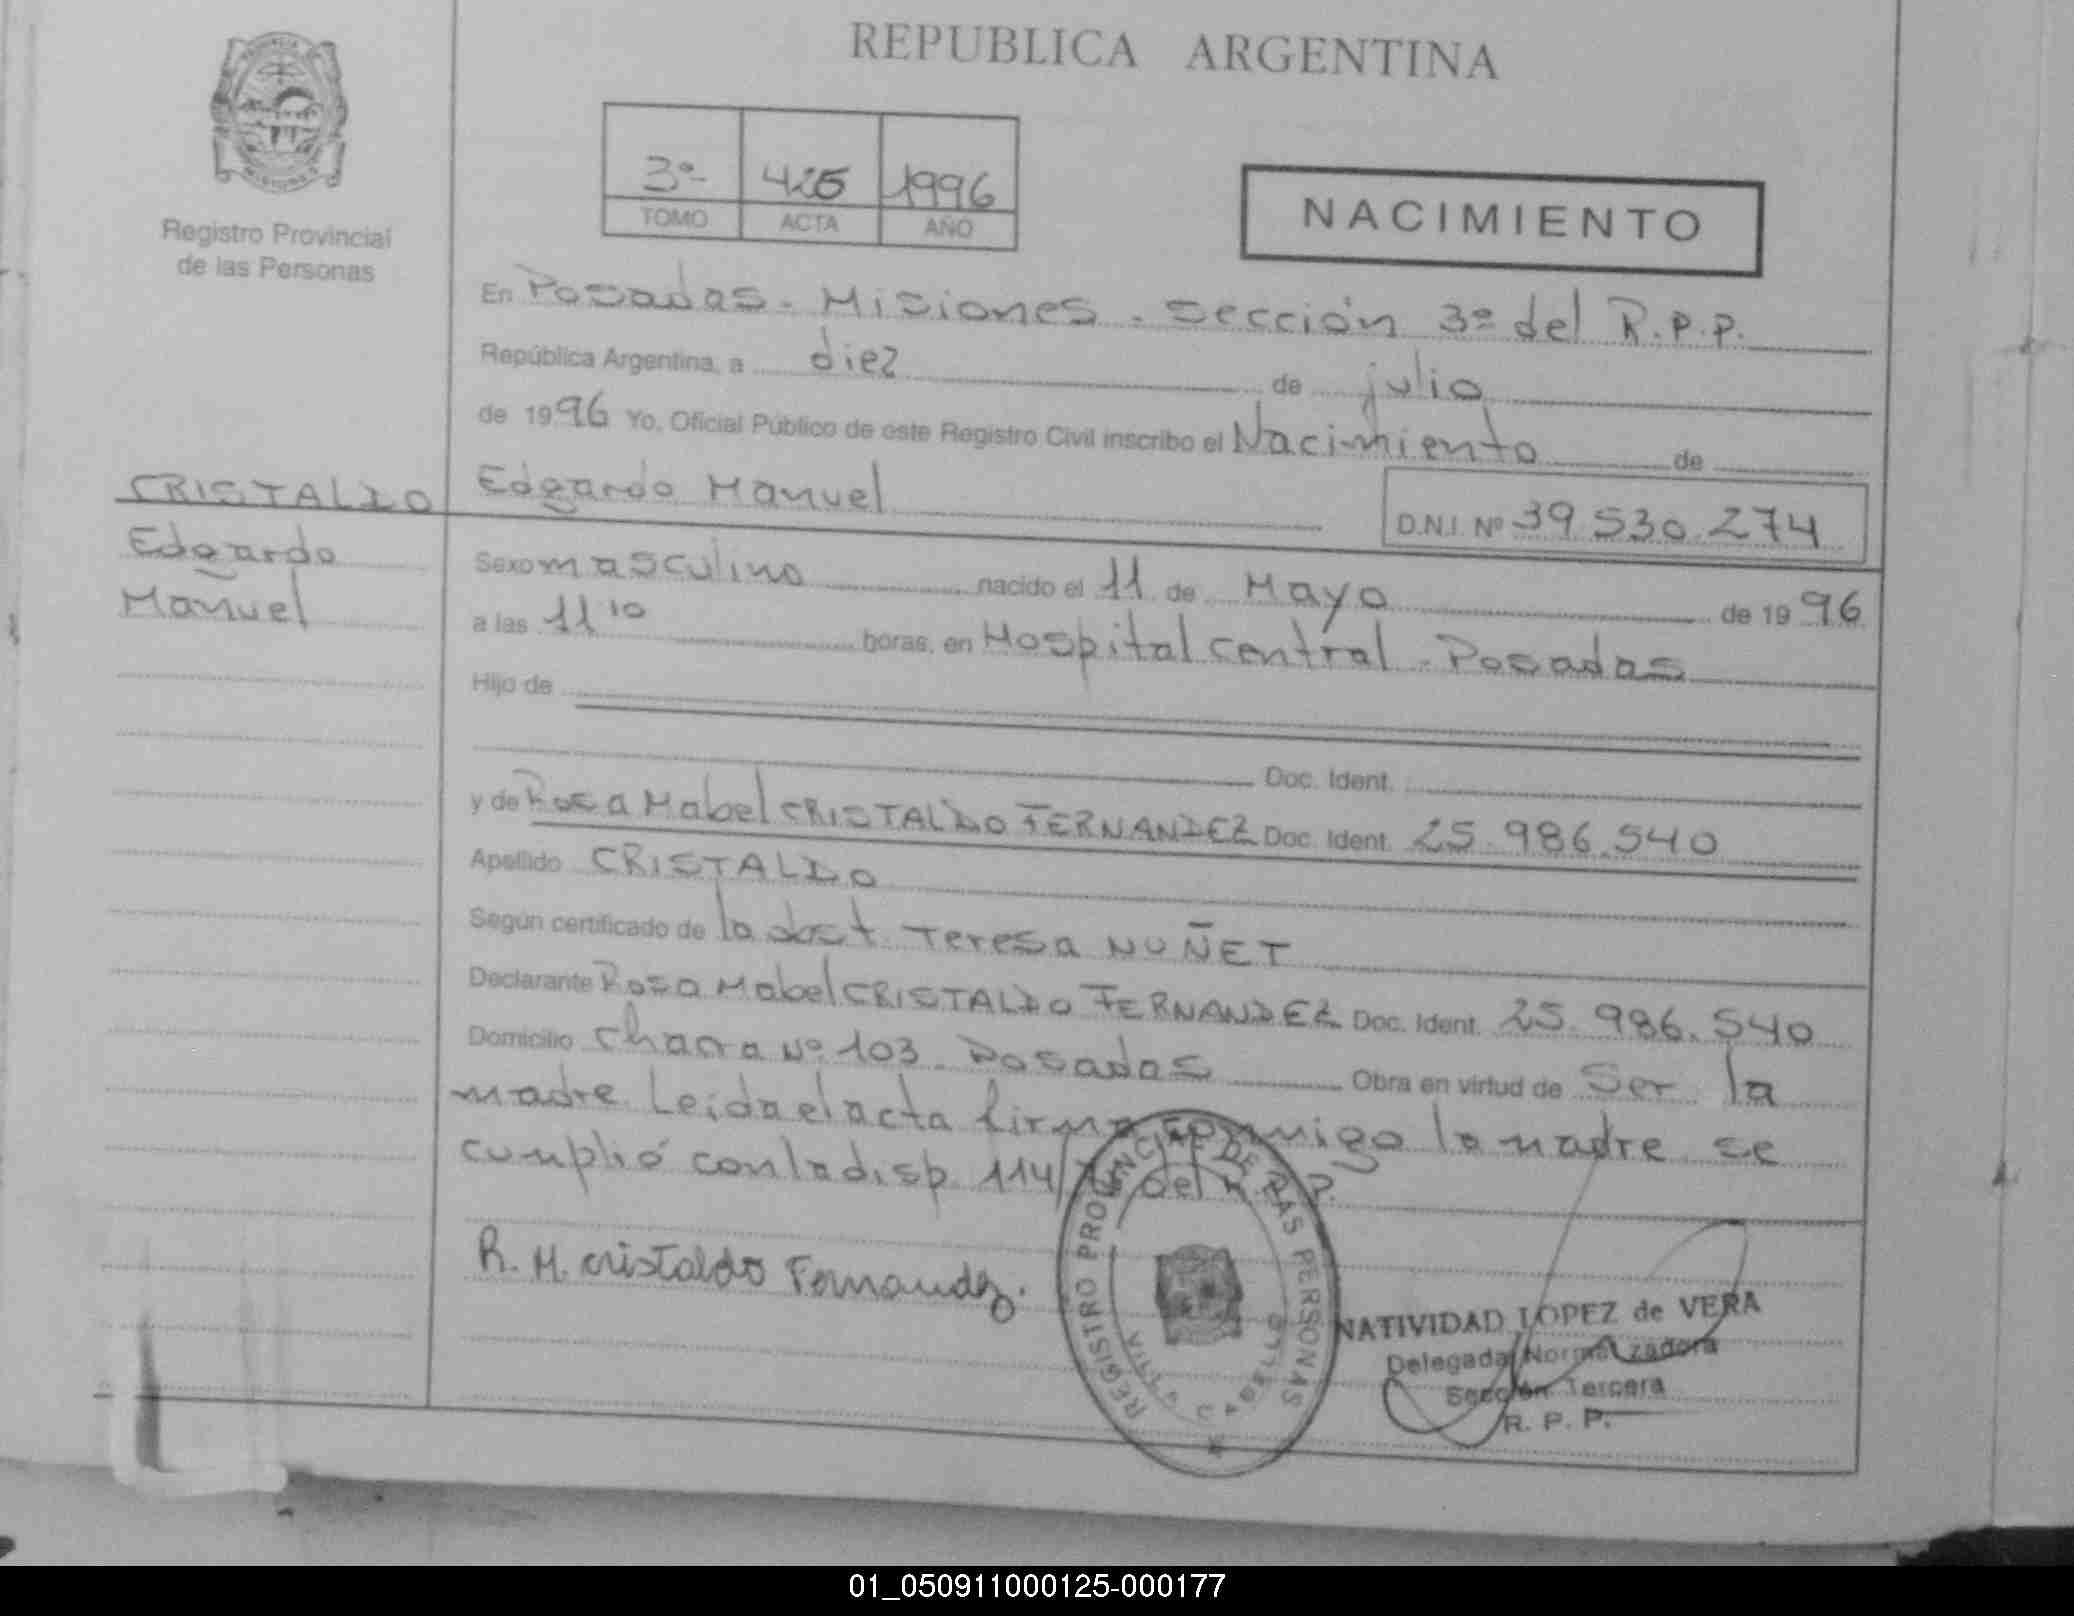 REPUBLICA ARGENTINA
MISIONES
Registro Provincial
de las Personas
3º 1996
TOMO ACTA AÑO
NACIMIENTO
En Posadas - Misiones - Sección 3º del R.P.P.
República Argentina, a diez de julio
de 1996 Yo, Oficial Público de este Registro Civil inscribo el Nacimiento de
CRISTALDO
Edgardo
Manuel
Edgardo Manuel
D.N.I. Nº 39.530.274
Sexo masculino nacido el 11 de Mayo de 1996
a las 11 10 horas, en Hospital Central - Posadas
Hijo de
Doc. Ident.
y de Rosa Mabel CRISTALDO FERNANDEZ Doc. Ident. 25.986.540
Apellido CRISTALDO
Según certificado de la obst. Teresa NUÑET
Declarante Rosa Mabel CRISTALDO FERNANDEZ Doc. Ident. 25.986.540
Domicilio Chacra Nº 103 - Posadas Obra en virtud de Ser la
madre. Leida el acta firma conmigo la madre se
cumplió con la disp. 114/ del R.P.P.
R. M. Cristaldo Fernandez.
REGISTRO PROVINCIAL DE LAS PERSONAS
NATIVIDAD LOPEZ de VERA
Delegada Normalizadora
Sección Tercera
R. P. P.
01_050911000125-000177